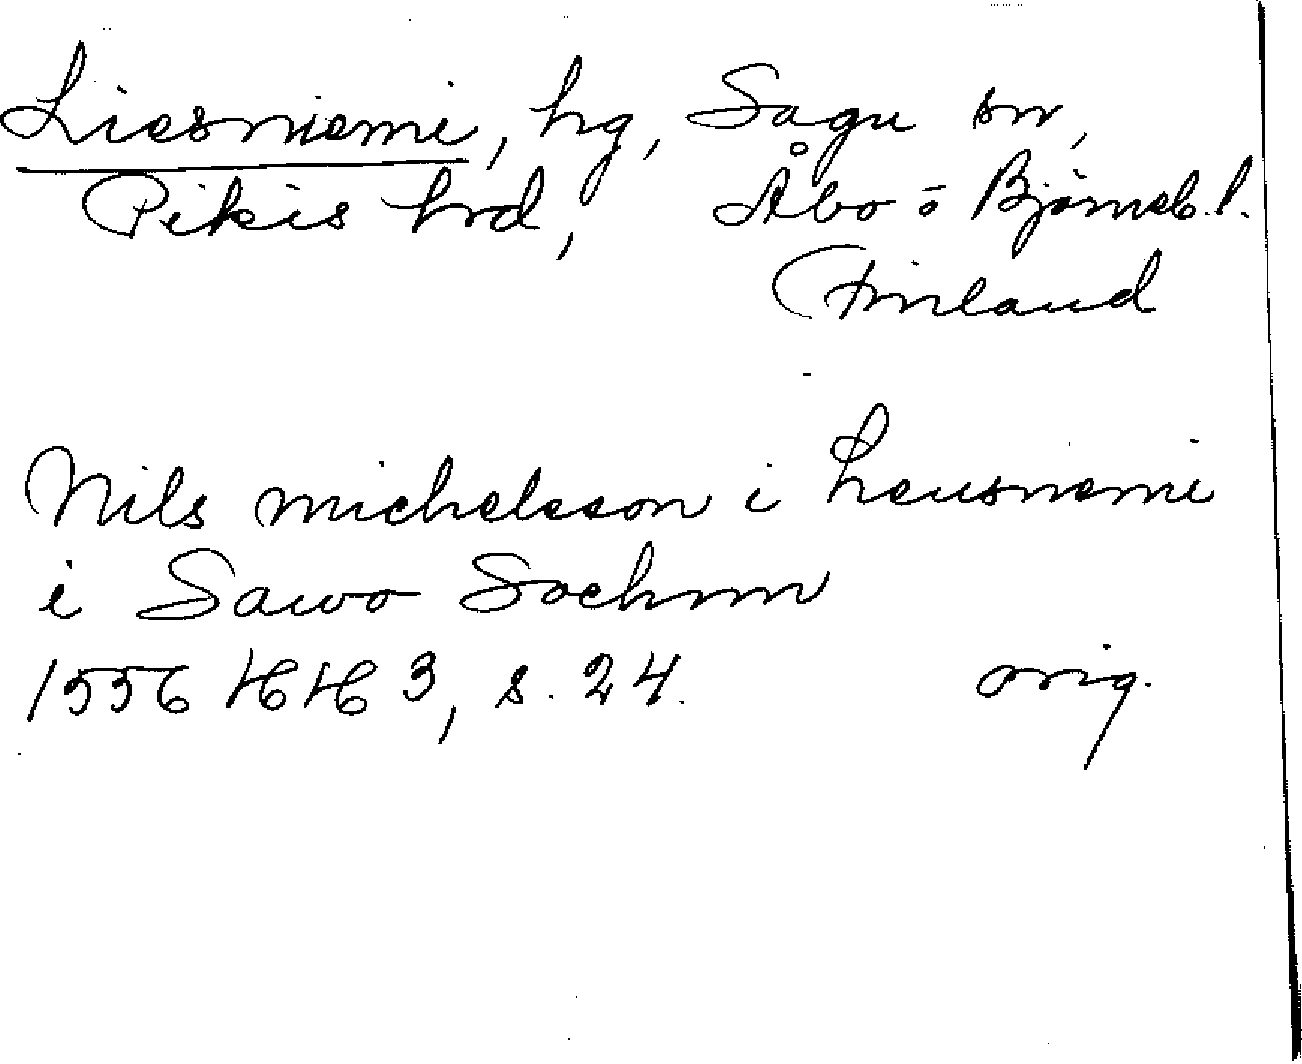 Liesniemi, hg, Sagu sn,
Pikis hrd, Åbo o Björneb. l.
Finland
Nils michelsson i Leusnemi
i Sawo Sochnn
1556 HH 3, s. 24. orig.